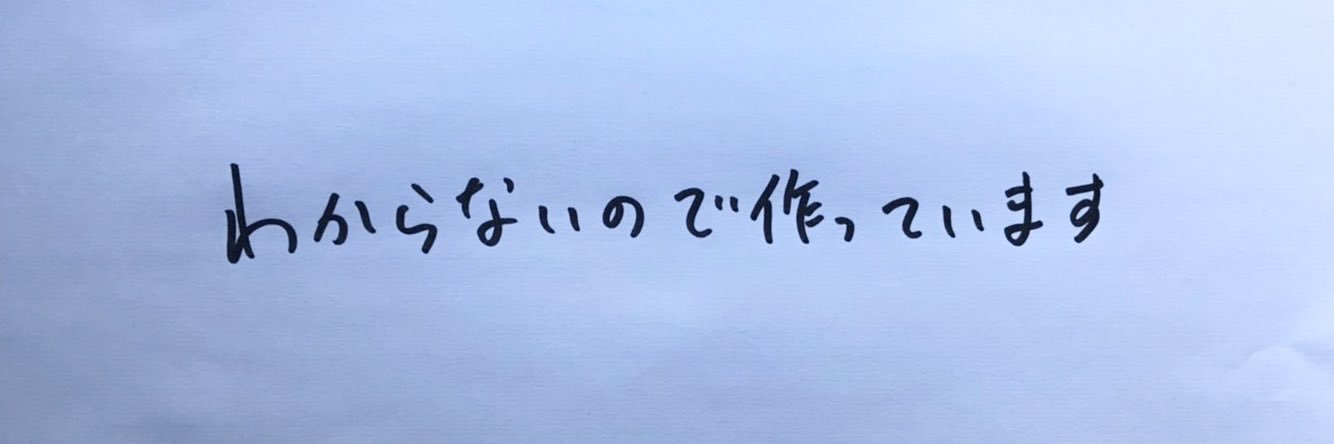 わからないので作っています